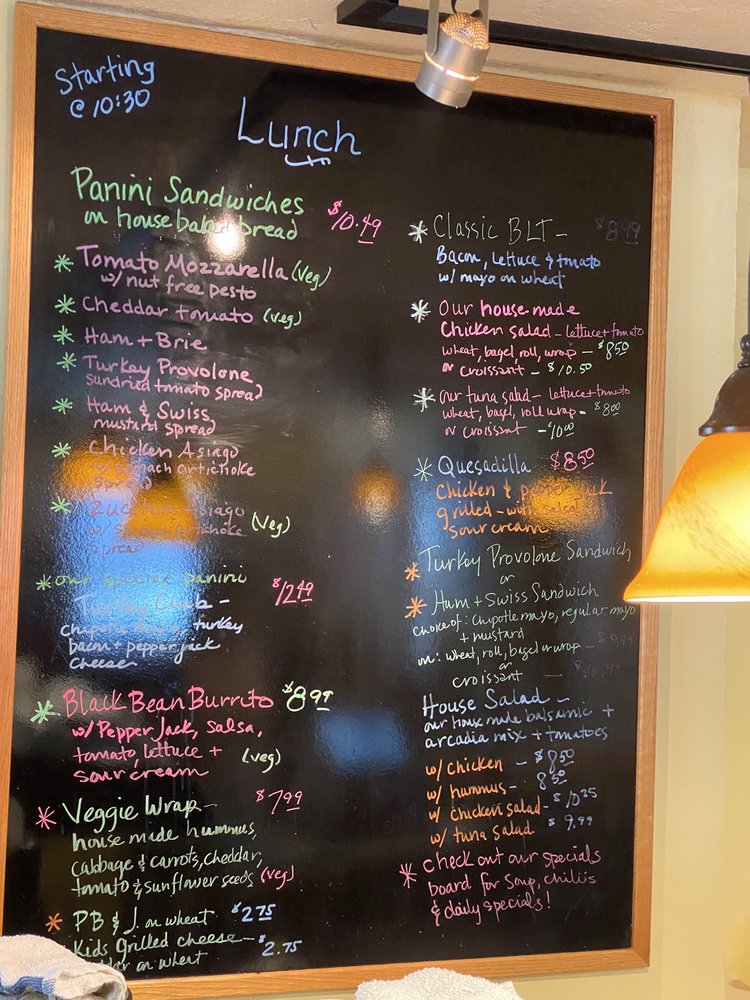 Starting
@ 10:30
Lunch
Panini Sandwiches
on house baked bread $10.49
* Tomato Mozzarella (veg)
w/ nut free pesto
* Cheddar tomato (veg)
* Ham + Brie
* Turkey Provolone
sundried tomato spread
* Ham & Swiss
mustard spread
* Chicken Asiago
w/ spinach artichoke
spread
* Zucchini Asiago
artichoke (Veg)
spread
* our special panini $12.49
Turkey Club –
chipotle mayo, turkey
bacon + pepper jack
cheese
* Black Bean Burrito $8.99
w/ Pepper Jack, salsa,
tomato, lettuce + (veg)
sour cream
* Veggie Wrap – $7.99
house made hummus,
cabbage & carrots, cheddar,
tomato & sunflower seeds (veg)
* PB & J. on wheat $2.75
Kids grilled cheese – $2.75
on wheat
* Classic BLT –
Bacon, lettuce & tomato
w/ mayo on wheat
* Our house made
Chicken salad – lettuce + tomato
wheat, bagel, roll, wrap – $8.50
or croissant – $10.50
* our tuna salad – lettuce + tomato
wheat, bagel, roll wrap – $8.00
or croissant – 10.00
* Quesadilla $8.50
Chicken & pepper jack
grilled – with salsa &
sour cream
* Turkey Provolone Sandwich
or
* Ham + Swiss Sandwich
choice of: chipotle mayo, regular mayo
+ mustard
on: wheat, roll, bagel or wrap –
or
croissant –
House Salad –
our house made balsamic +
arcadia mix + tomatoes
w/ chicken – $8.50
w/ hummus – 8.50
w/ chicken salad – $10.25
w/ tuna salad $9.99
* check out our specials
board for soup, chili's
& daily specials!